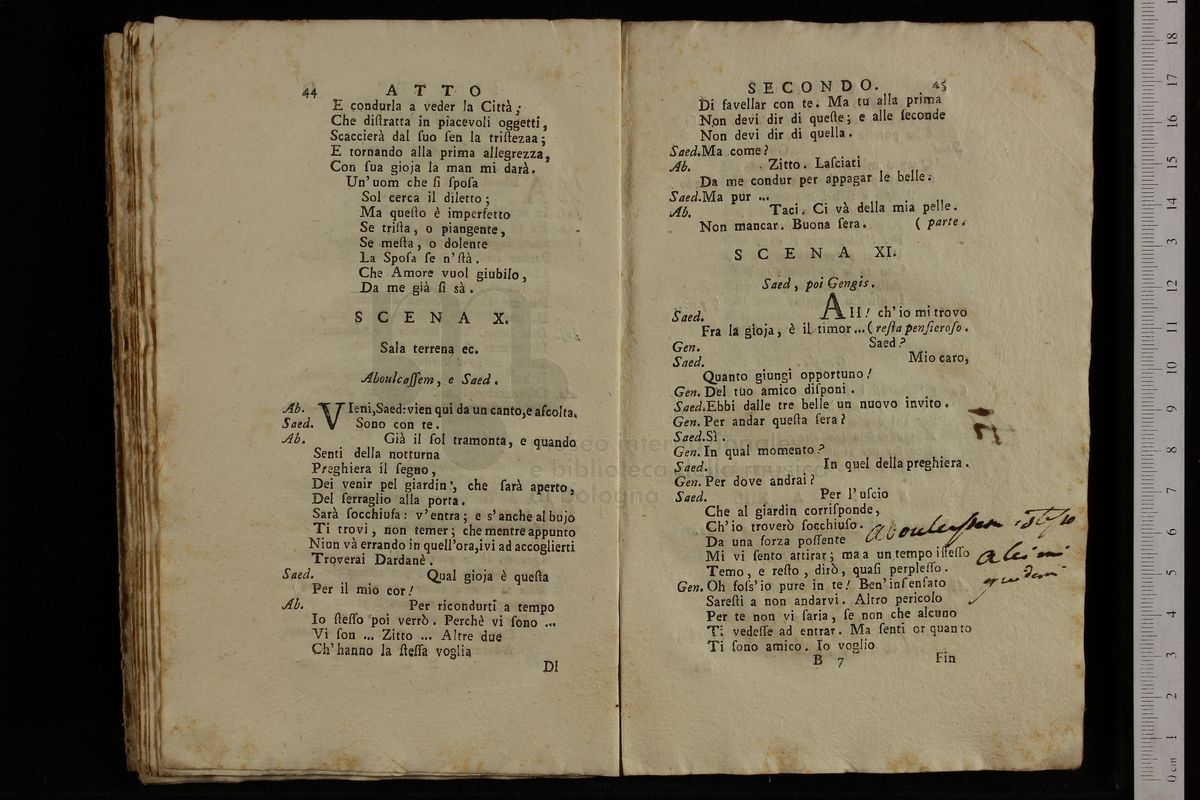 44 ATTO
E condurla a veder la Città;
Che diſtratta in piacevoli oggetti,
Scaccierà dal ſuo ſen la triſtezaa;
E tornando alla prima allegrezza,
Con ſua gioja la man mi darà.
Un'uom che ſi ſpoſa
Sol cerca il diletto;
Ma queſto è imperfetto
Se triſta, o piangente,
Se meſta, o dolente
La Spoſa ſe n'ſtà.
Che Amore vuol giubilo,
Da me già ſi sà.
SCENA X.
Sala terrena ec.
Aboulcaſſem, e Saed.
Ab. VIeni, Saed: vien qui da un canto, e aſcolta.
Saed. Sono con te.
Ab. Già il ſol tramonta, e quando
Senti della notturna
Preghiera il ſegno,
Dei venir pel giardin', che ſarà aperto,
Del ſerraglio alla porta.
Sarà ſocchiuſa: v'entra; e s'anche al bujo
Ti trovi, non temer; che mentre appunto
Niun và errando in quell'ora, ivi ad accoglierti
Troverai Dardanè.
Saed. Qual gioja è queſta
Per il mio cor!
Ab. Per ricondurti a tempo
Io ſteſſo poi verrò. Perchè vi ſono ...
Vi ſon ... Zitto ... Altre due
Ch'hanno la ſteſſa voglia
Di
SECONDO. 45
Di favellar con te. Ma tu alla prima
Non devi dir di queſte; e alle ſeconde
Non devi dir di quella.
Saed. Ma come?
Ab. Zitto. Laſciati
Da me condur per appagar le belle.
Saed. Ma pur ...
Ab. Taci. Ci và della mia pelle.
Non mancar. Buona ſera. (parte.
SCENA XI.
Saed, poi Gengis.
Saed. AH! ch'io mi trovo
Fra la gioja, è il timor... (reſta penſieroſo.
Gen. Saed?
Saed. Mio caro,
Quanto giungi opportuno!
Gen. Del tuo amico diſponi.
Saed. Ebbi dalle tre belle un nuovo invito.
Gen. Per andar queſta ſera?
Saed. Sì.
Gen. In qual momento?
Saed. In quel della preghiera.
Gen. Per dove andrai?
Saed. Per l'uſcio
Che al giardin corriſponde,
Ch'io troverò ſocchiuſo.
Da una forza poſſente
Mi vi ſento attirar; ma a un tempo iſteſſo
Temo, e reſto, dirò, quaſi perpleſſo.
Gen. Oh foſs'io pure in te! Ben'inſenſato
Sareſti a non andarvi. Altro pericolo
Per te non vi ſaria, ſe non che alcuno
Ti vedeſſe ad entrar. Ma ſenti or quanto
Ti ſono amico. Io voglio
B 7 Fin